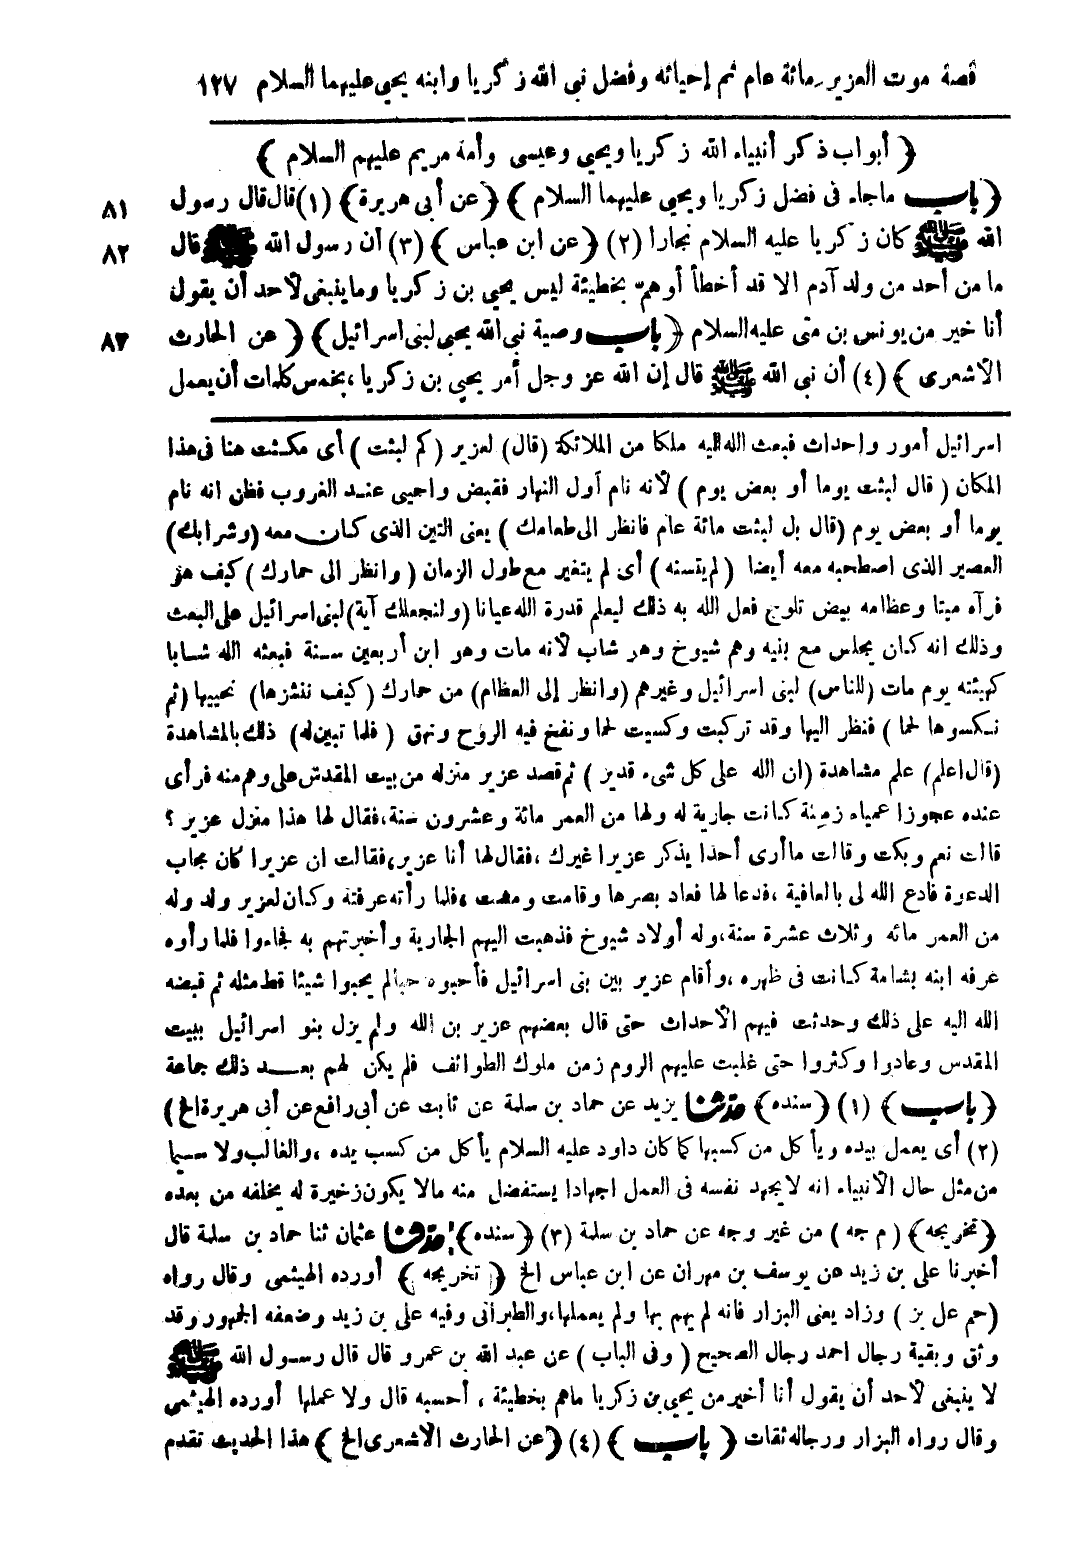 قصة موت العزير مائة عام ثم إحيائه وفضل نبي الله زكريا وابنه يحيى عليهما السلام ١٢٧
﴿ أبواب ذكر أنبياء الله زكريا ويحيى وعيسى وأمه مريم عليهم السلام ﴾
﴿ باب ماجاء فى فضل زكريا ويحيى عليهما السلام ﴾ ﴿ عن أبى هريرة ﴾ (١) قال قال رسول ٨١
الله ﷺ كان زكريا عليه السلام نجارا (٢) ﴿ عن ابن عباس ﴾ (٣) أن رسول الله ﷺ قال ٨٢
ما من أحد من ولد آدم الا قد أخطأ أوهمّ بخطيئة ليس يحيى بن زكريا وما ينبغى لأحد أن يقول
أنا خير من يونس بن متى عليه السلام ﴿ باب وصية نبى الله يحيى لبنى اسرائيل ﴾ ﴿ عن الحارث ٨٣
الأشعرى ﴾ (٤) أن نبى الله ﷺ قال إن الله عز وجل أمر يحيى بن زكريا، بخمس كلمات أن يعمل
اسرائيل أمور واحداث فبعث الله اليه ملكا من الملائكة (قال) لعزير (كم لبثت) أى مكثت هنا فى هذا
المكان (قال لبثت يوما أو بعض يوم) لأنه نام أول النهار فقبض واحيى عند الغروب فظن انه نام
يوما أو بعض يوم (قال بل لبثت مائة عام فانظر الى طعامك) يعنى التين الذى كان معه (وشرابك)
العصير الذى اصطحبه معه أيضا (لم يتسنه) أى لم يتغير مع طول الزمان (وانظر الى حمارك) كيف هو
فرآه ميتا وعظامه بيض تلوح فعل الله به ذلك ليعلم قدرة الله عيانا (ولنجعلك آية) لبنى اسرائيل على البعث
وذلك انه كان يجلس مع بنيه وهم شيوخ وهو شاب لأنه مات وهو ابن أربعين سنة فبعثه الله شابا
كهيئته يوم مات (للناس) لبنى اسرائيل وغيرهم (وانظر إلى العظام) من حمارك (كيف ننشزها) نحييها (ثم
نكسوها لحما) فنظر اليها وقد تركبت وكسيت لحما ونفخ فيه الروح ونهق (فلما تبين له) ذلك بالمشاهدة
(قال اعلم) علم مشاهدة (ان الله على كل شىء قدير) ثم قصد عزير منزله من بيت المقدس على وهم منه فرأى
عنده عجوزا عمياء زمنة كانت جارية له ولها من العمر مائة وعشرون سنة، فقال لها هذا منزل عزير ؟
قالت نعم وبكت وقالت ما أرى أحدا يذكر عزيرا غيرك، فقال لها أنا عزير، فقالت ان عزيرا كان مجاب
الدعوة فادع الله لى بالعافية، فدعا لها فعاد بصرها وقامت ومشت، فلما رأته عرفته وكان لعزير ولد وله
من العمر مائه وثلاث عشرة سنة، وله أولاد شيوخ فذهبت اليهم الجارية وأخبرتهم به فجاءوا فلما رأوه
عرفه ابنه بشامة كانت فى ظهره، وأقام عزير بين بنى اسرائيل فأحبوه حبا لم يحبوا شيئا قط مثله ثم قبضه
الله اليه على ذلك وحدثت فيهم الأحداث حتى قال بعضهم عزير بن الله ولم يزل بنو اسرائيل ببيت
المقدس وعادوا وكثروا حتى غلبت عليهم الروم زمن ملوك الطوائف فلم يكن لهم بعد ذلك جماعة
﴿ باب ﴾ (١) ﴿ سنده ﴾ حدثنا يزيد عن حماد بن سلمة عن ثابت عن أبى رافع عن أبى هريرة الخ ﴾
(٢) أى يعمل بيده ويأكل من كسبها كما كان داود عليه السلام يأكل من كسب يده، والغالب ولا سيما
من مثل حال الأنبياء انه لا يجهد نفسه فى العمل اجهادا يستفضل منه مالا يكون زخيرة له يخلفه من بعده
﴿ تخريجه ﴾ (م جه) من غير وجه عن حماد بن سلمة (٣) ﴿ سنده ﴾ حدثنا عثمان ثنا حماد بن سلمة قال
أخبرنا على بن زيد عن يوسف بن مهران عن ابن عباس الخ ﴿ تخريجه ﴾ أورده الهيثمى وقال رواه
(حم عل بز) وزاد يعنى البزار فانه لم يهم بها ولم يعملها، والطبرانى وفيه على بن زيد وضعفه الجمهور وقد
وثق وبقية رجال احمد رجال الصحيح (وفى الباب) عن عبد الله بن عمرو قال قال رسول الله ﷺ
لا ينبغى لأحد أن يقول أنا أخير من يحيى بن زكريا ماهم بخطيئة، أحسبه قال ولا عملها أورده الهيثمى
وقال رواه البزار ورجاله ثقات ﴿ باب ﴾ (٤) ﴿ عن الحارث الأشعرى الخ ﴾ هذا الحديث تقدم